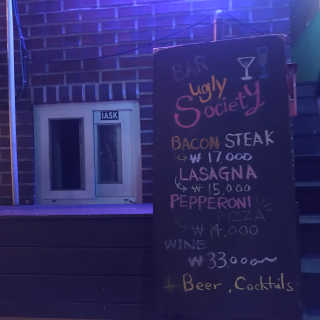 IASK
BAR
ugly
Society
BACON STEAK
₩ 17000
LASAGNA
₩ 15,000
PEPPERONI
PIZZA
₩ 14,000
WINE
₩ 33,000~
+ Beer, Cocktails